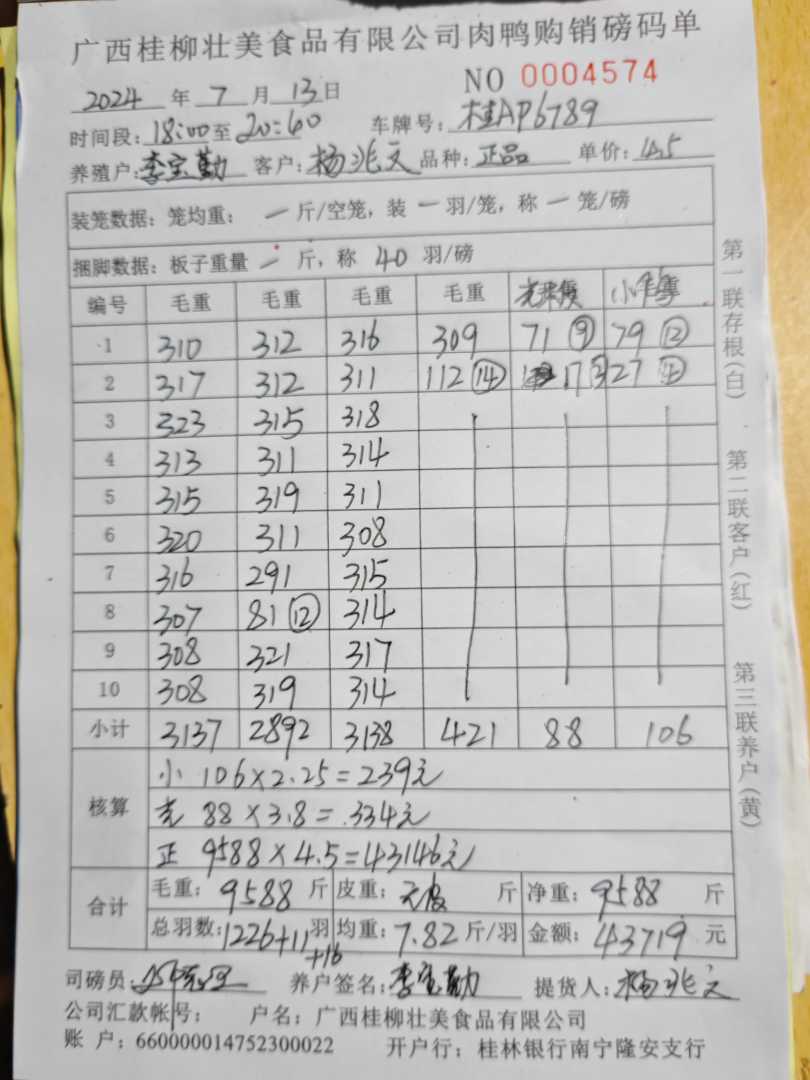 广西桂柳壮美食品有限公司肉鸭购销磅码单
NO 0004574
2024 年 7 月 13 日
时间段: 18:00 至 20:40 车牌号: 桂AP6789
养殖户: 李宝勤 客户: 杨兆文 品种: 正品 单价: 4.5
装笼数据: 笼均重: 一 斤/空笼, 装 一 羽/笼, 称 一 笼/磅
捆脚数据: 板子重量 一 斤, 称 40 羽/磅
编号 毛重 毛重 毛重 毛重
1 310 312 316 309 71 ⑨ 79 ⑫
2 317 312 311 112 ⑭ 17 27 ④
3 323 315 318
4 313 311 314
5 315 319 311
6 320 311 308
7 316 291 315
8 307 81 ⑫ 314
9 308 321 317
10 308 319 314
小计 3137 2892 3138 421 88 106
核算
小 106×2.25=239元
88×3.8=334元
正 9588×4.5=43146元
合计
毛重: 9588 斤 皮重: 斤 净重: 9588 斤
总羽数: 1226+11 羽 均重: 7.82 斤/羽 金额: 43719 元
+16
司磅员: 养户签名: 李宝勤 提货人: 杨兆文
公司汇款帐号: 户名: 广西桂柳壮美食品有限公司
账 户: 660000014752300022 开户行: 桂林银行南宁隆安支行
第一联存根(白)
第二联客户(红)
第三联养户(黄)